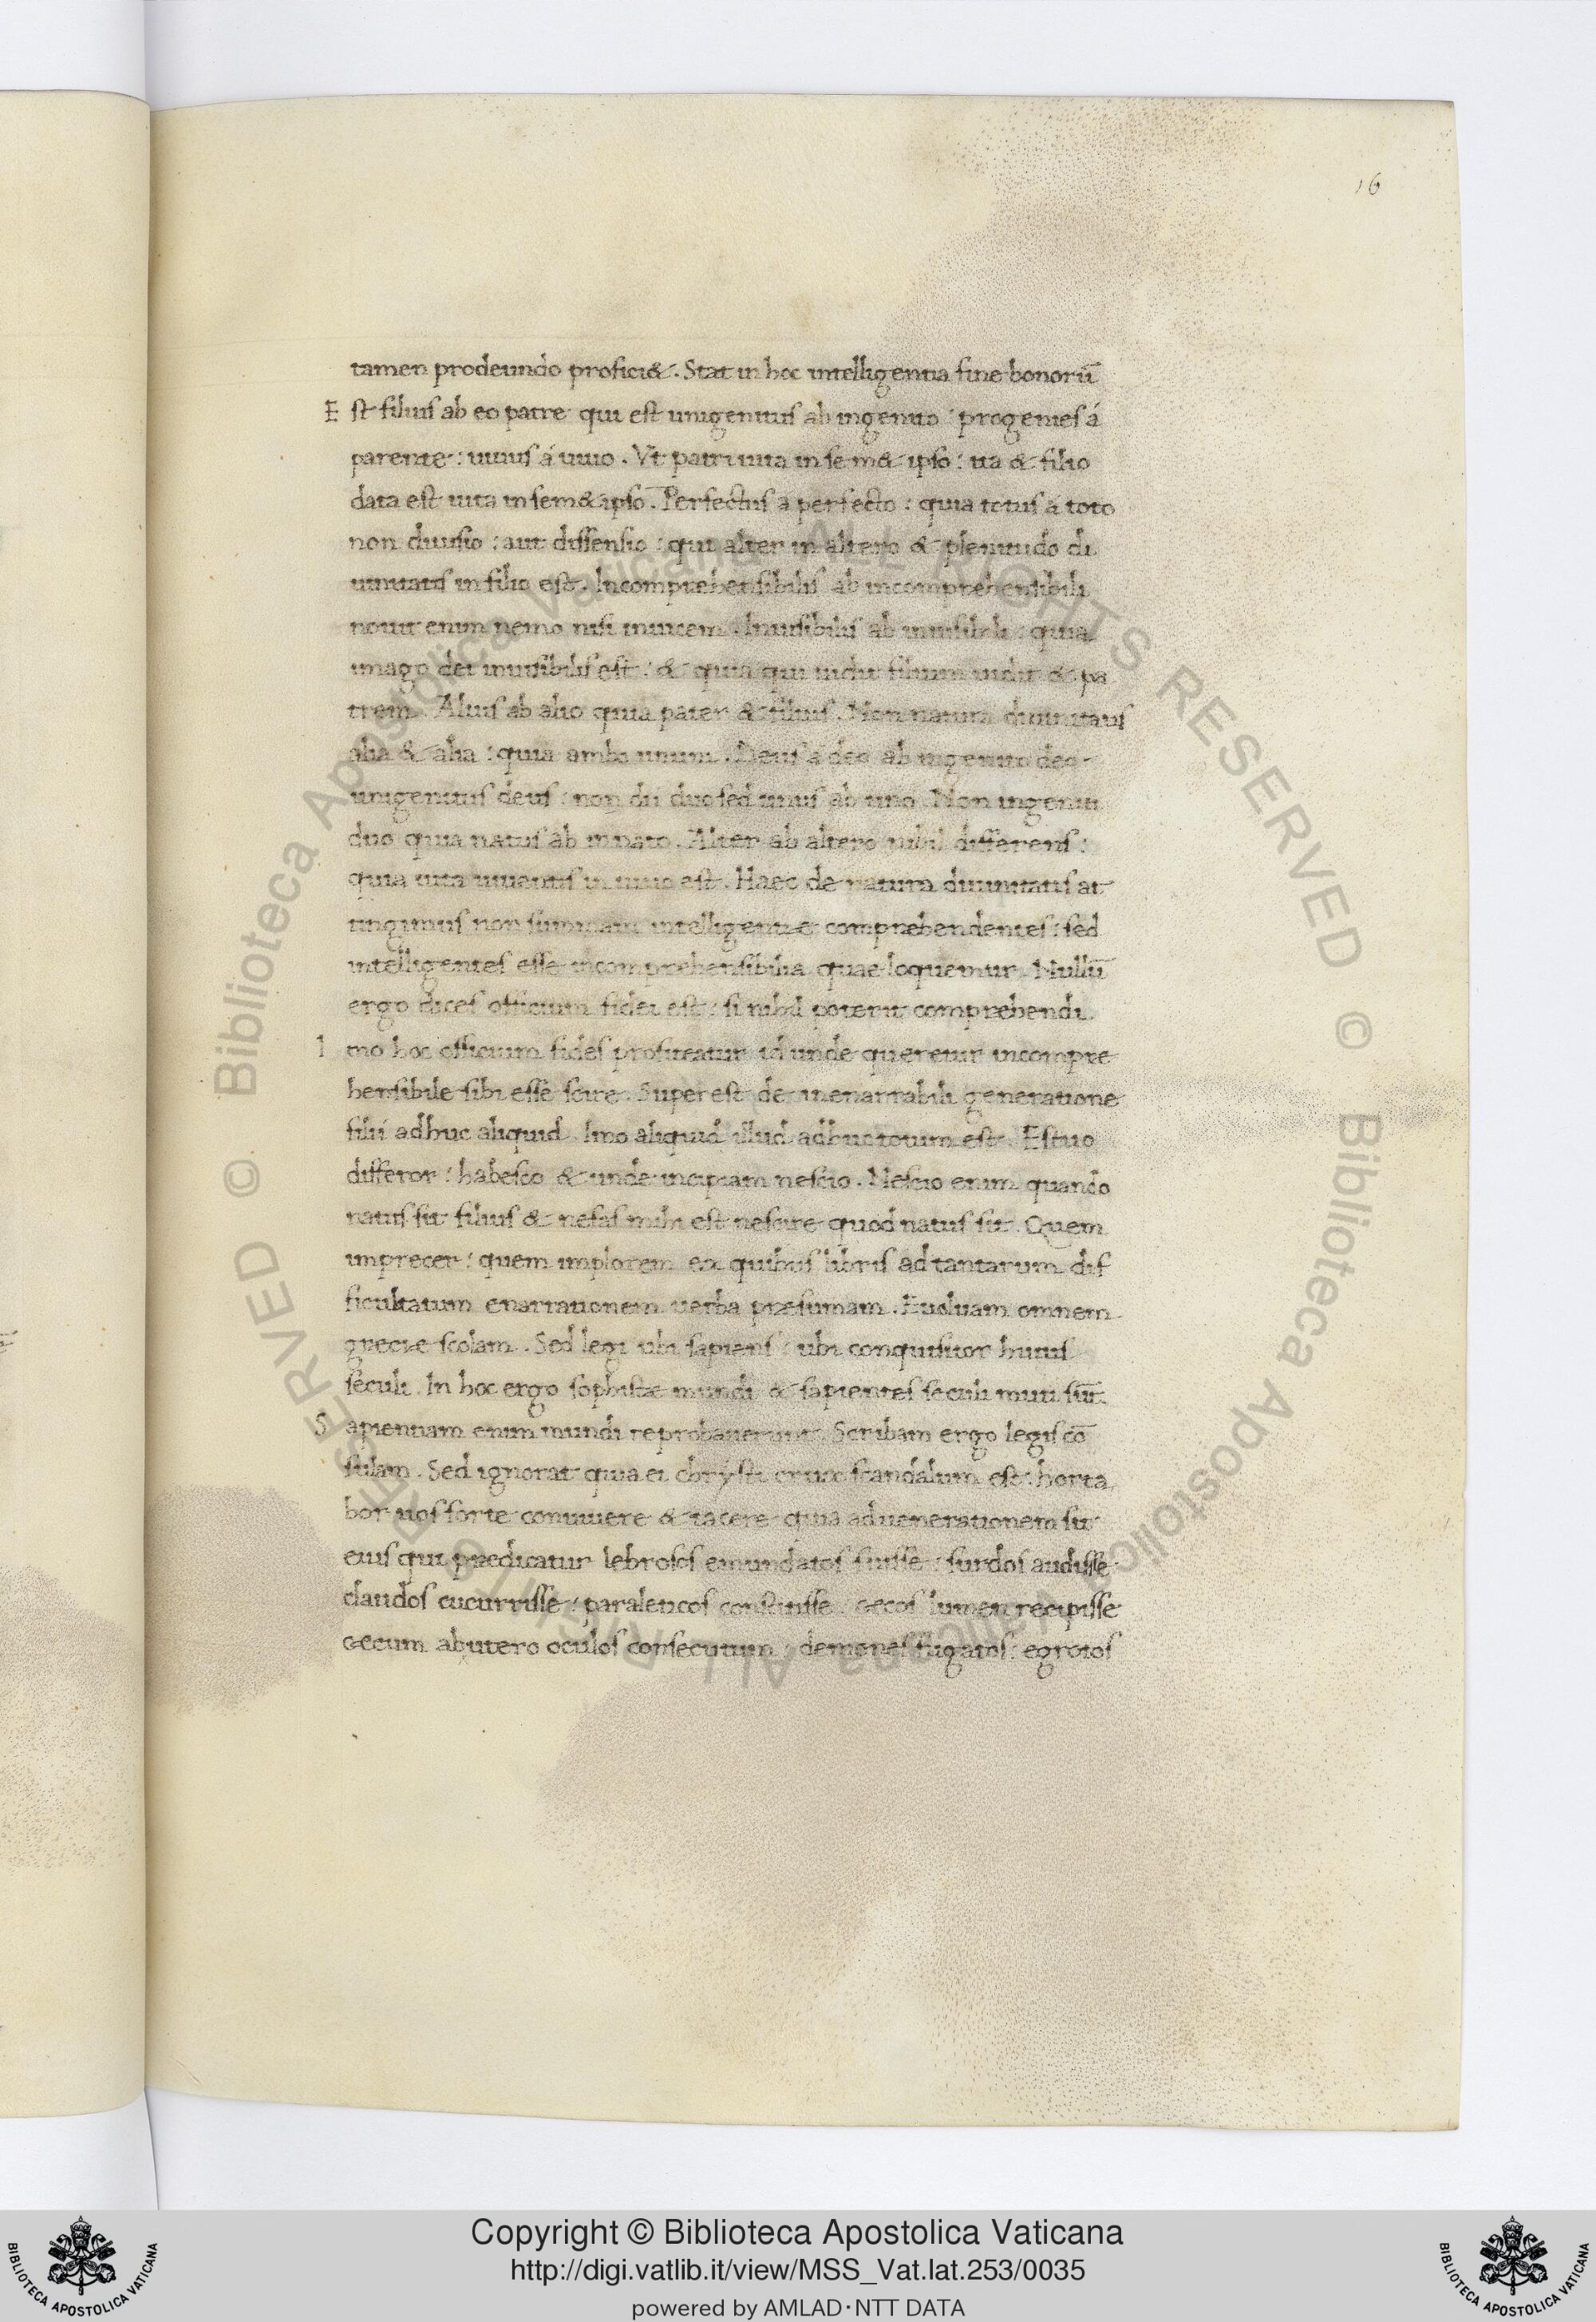 16
tamen prodeundo profici&. Stat in hoc intelligentia fine bonorū
Est filius ab eo patre qui est unigenitus ab ingenito : progenies á
parente : uiuus á uiuo. Vt patri uita in sem& ipso : ita & filio
data est uita in sem& ipso. Perfectus a perfecto : quia totus á toto
non diuisio : aut dissensio : qui alter in altero & plenitudo di
uinitatis in filio est. Incomprehensibilis ab incomprehensibili
nouit enim nemo nisi inuicem. Inuisibilis ab inuisibili : quia
imago dei inuisibilis est : & quia qui uidit filium uidit & pa
trem. Alius ab alio quia pater & filius. Non natura diuinitatis
alia & alia : quia ambi unum. Deus a deo ab ingenito deo
unigenitus deus : non dii duo sed unus ab uno. Non ingeniti
duo quia natus ab innato. Alter ab altero nihil differens :
quia uita uiuentis in uiuo est. Haec de natura diuinitatis at
tingimus non summam intelligentiæ comprehendentes : sed
intelligentes esse incomprehensibilia quae loquemur. Nullū
ergo dices officium fidei est : si nihil poterit comprehendi.
Imo hoc officium fides profiteatur id unde queretur incompre
hensibile sibi esse scire. Superest de inenarrabili generatione
filií adhuc aliquid. Imo aliquid illud adhuc totum est. Estuo
differor : habesco & unde incipiam nescio. Nescio enim quando
natus sit filius & nefas mihi est nescire quod natus sit. Quem
imprecer : quem implorem ex quibus libris ad tantarum dif
ficultatum enarrationem uerba præsumam. Euoluam omnem
greciæ scolam. Sed legi ubi sapiens : ubi conquisitor huius
seculi. In hoc ergo sophistæ mundi & sapientes seculi muti sūt.
Sapientiam enim mundi reprobauerunt. Scribam ergo legis cō
sulam. Sed ignorat quia ei chrysti crux scandalum est : horta
bor uos forte conuiuere & tacere quia ad uenerationem sit
eius qui predicatur lebrosos emundatos fuisse : surdos audisse
claudos cucurrisse : paraleticos constitisse : cecos lumen recipisse
cecum ab utero oculos consecutum : demones fugatos : egrotos
Copyright © Biblioteca Apostolica Vaticana
http://digi.vatlib.it/view/MSS_Vat.lat.253/0035
powered by AMLAD·NTT DATA